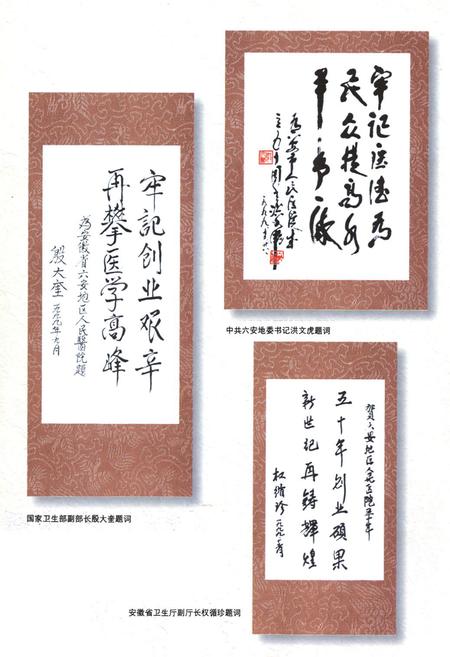 牢記创业艰辛
再攀医学高峰
為安徽省六安地区人民醫院題
殷大奎 一九九九年七月
国家卫生部副部长殷大奎题词
牢记医德为
民众提高水
中共六安地委书记洪文虎题词
贺六安地区人民医院五十年
五十年创业硕果
新世纪再铸辉煌
权循珍
安徽省卫生厅副厅长权循珍题词